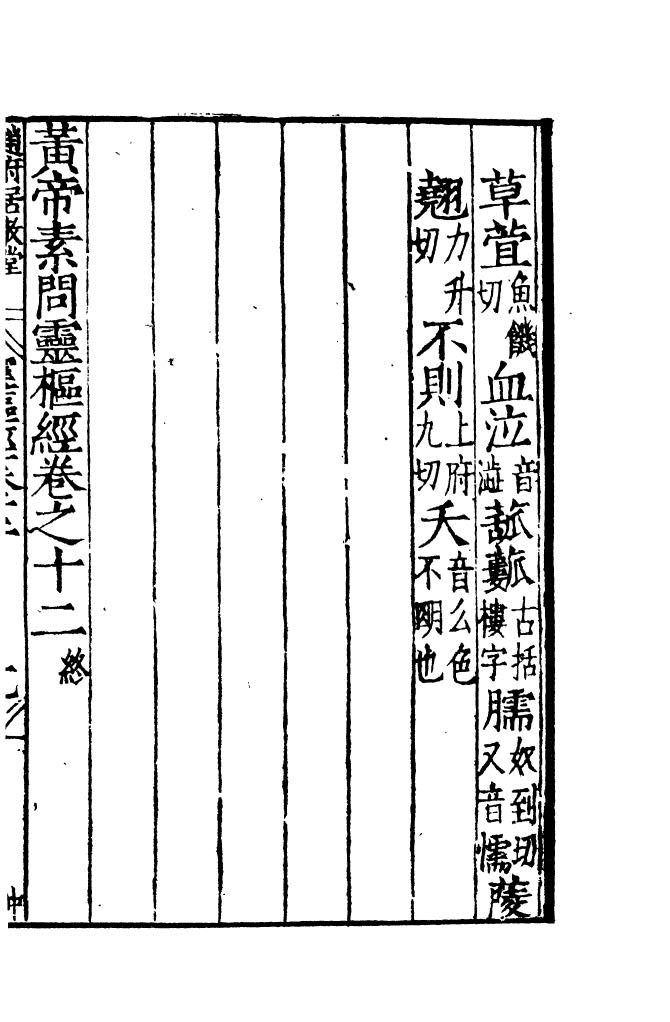 草萱魚饑切血泣音澁古括樓字臑奴到切又音懦䔖
翹力升切不則上府九切夭音么色不明也
黃帝素問靈樞經卷之十二終
趙府居敬堂